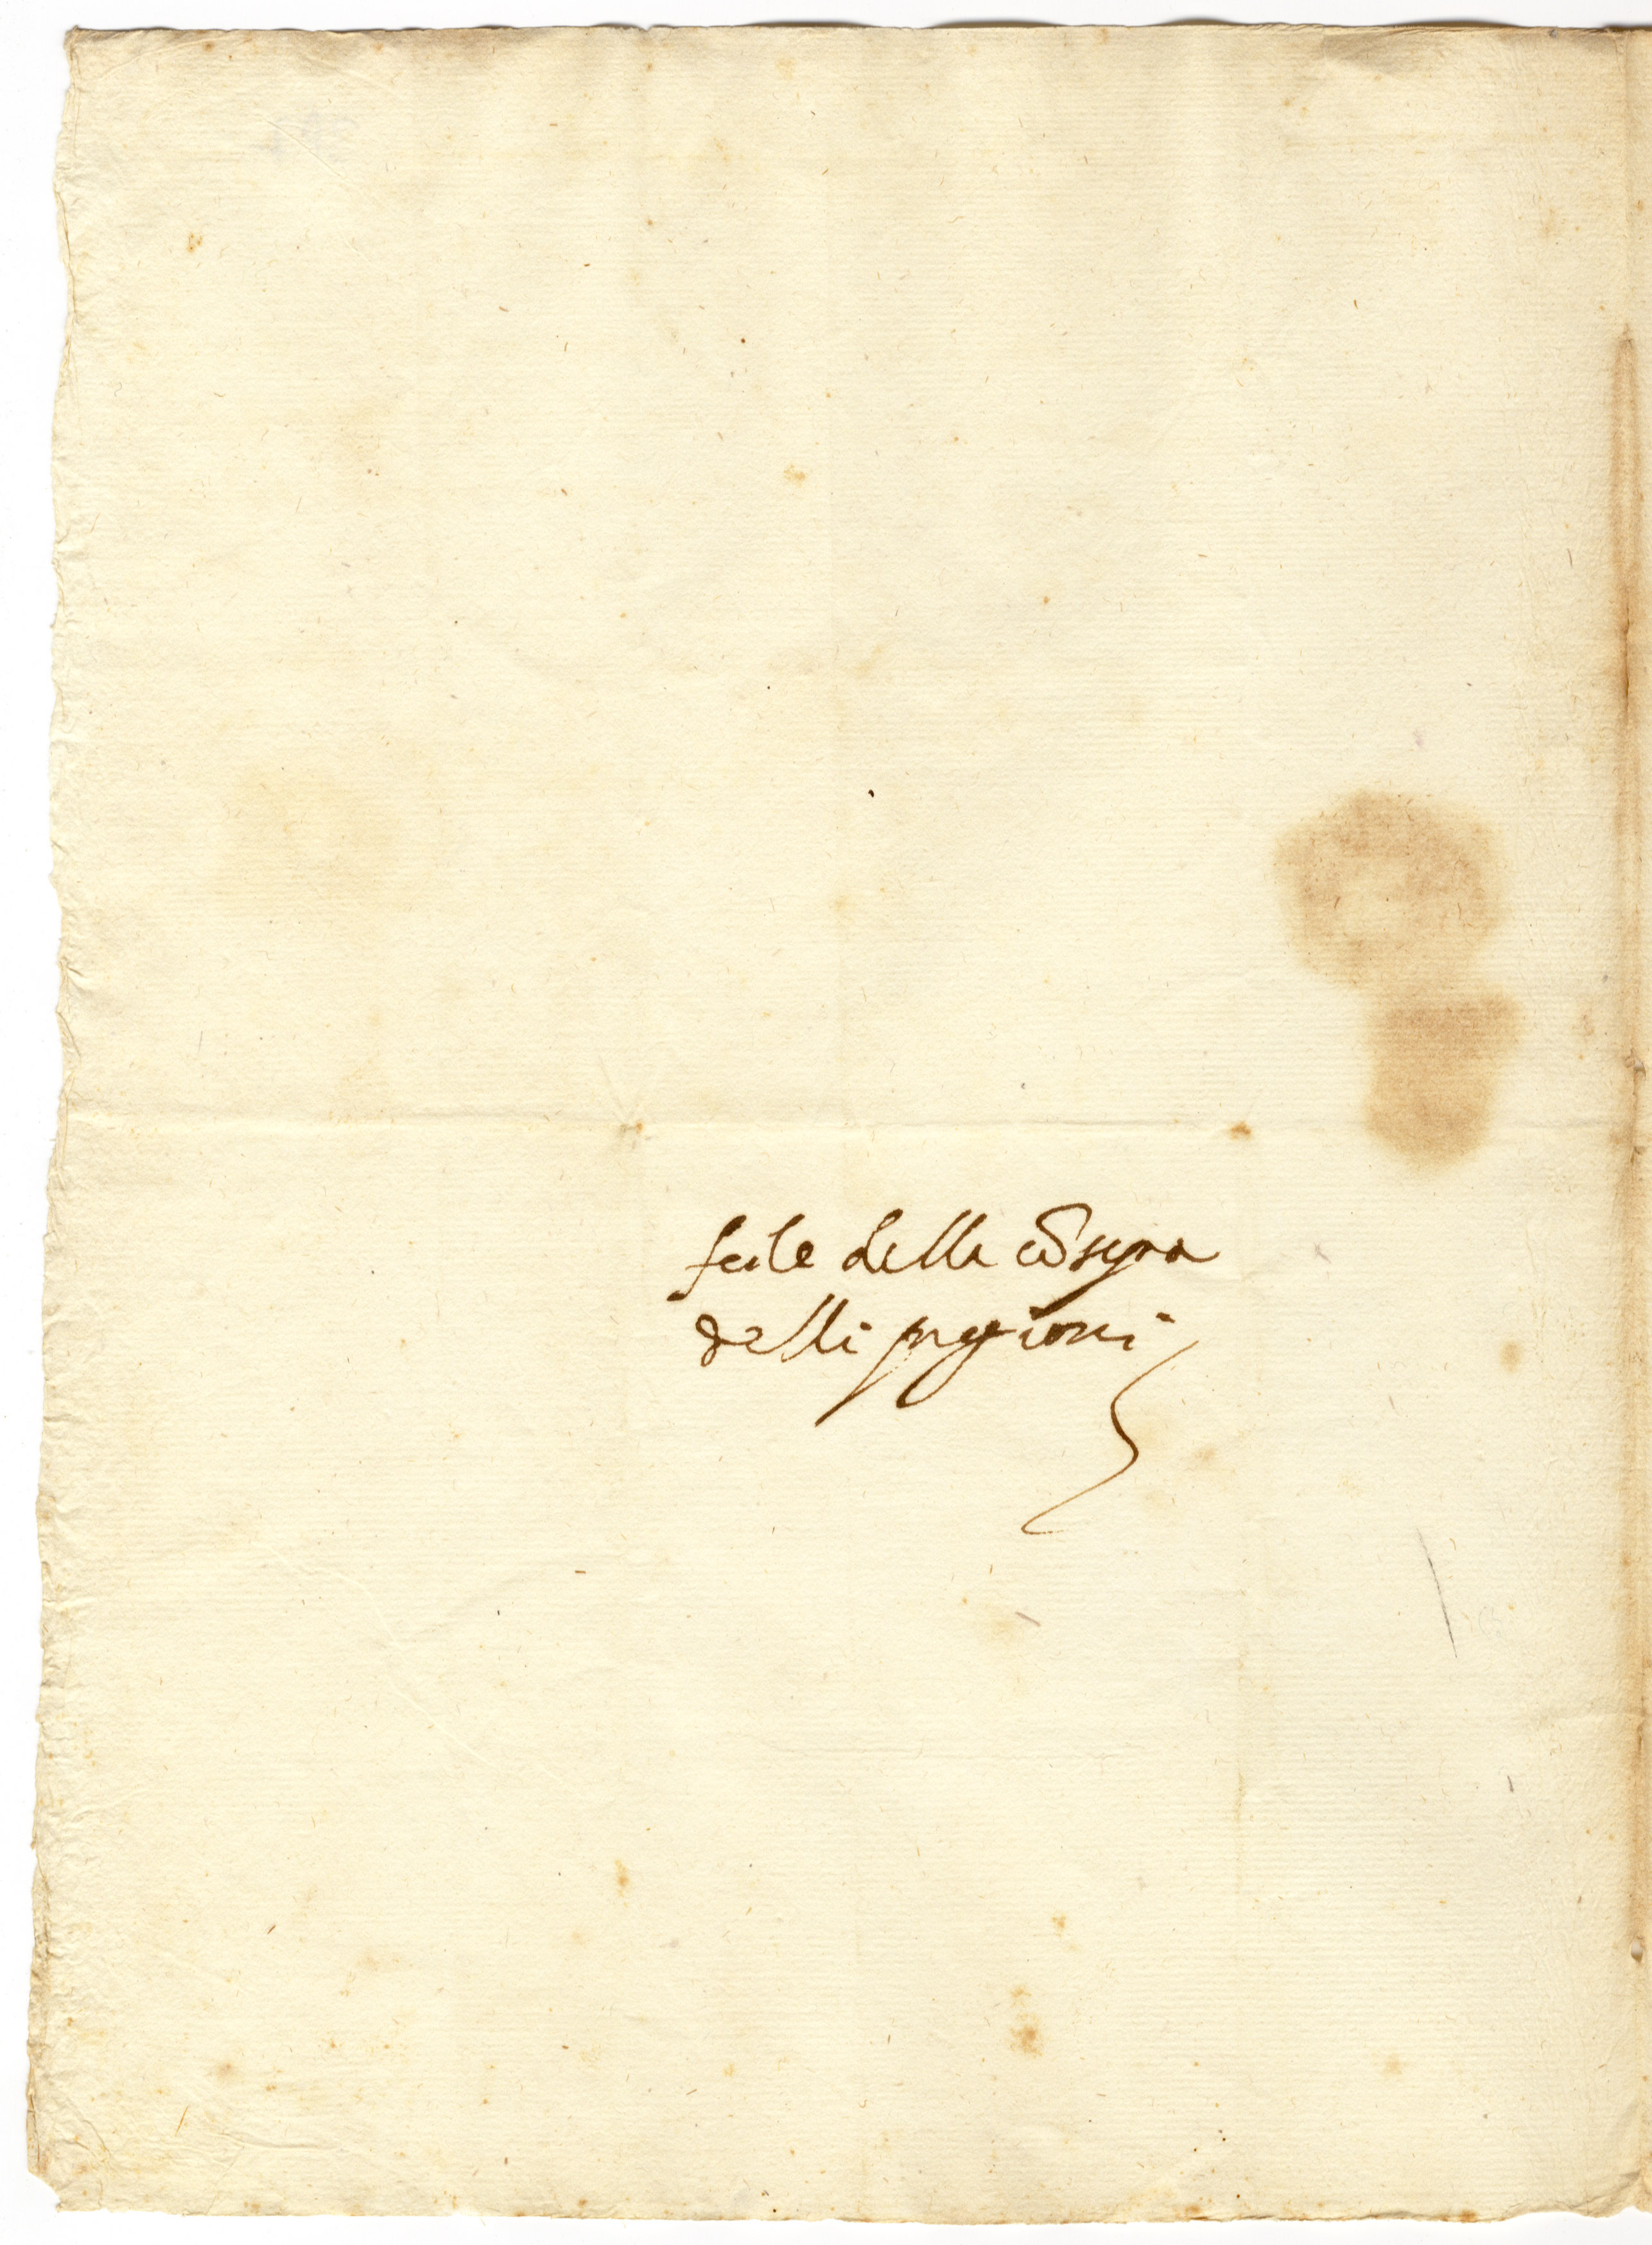 fede della cõsegna
delli pregioni